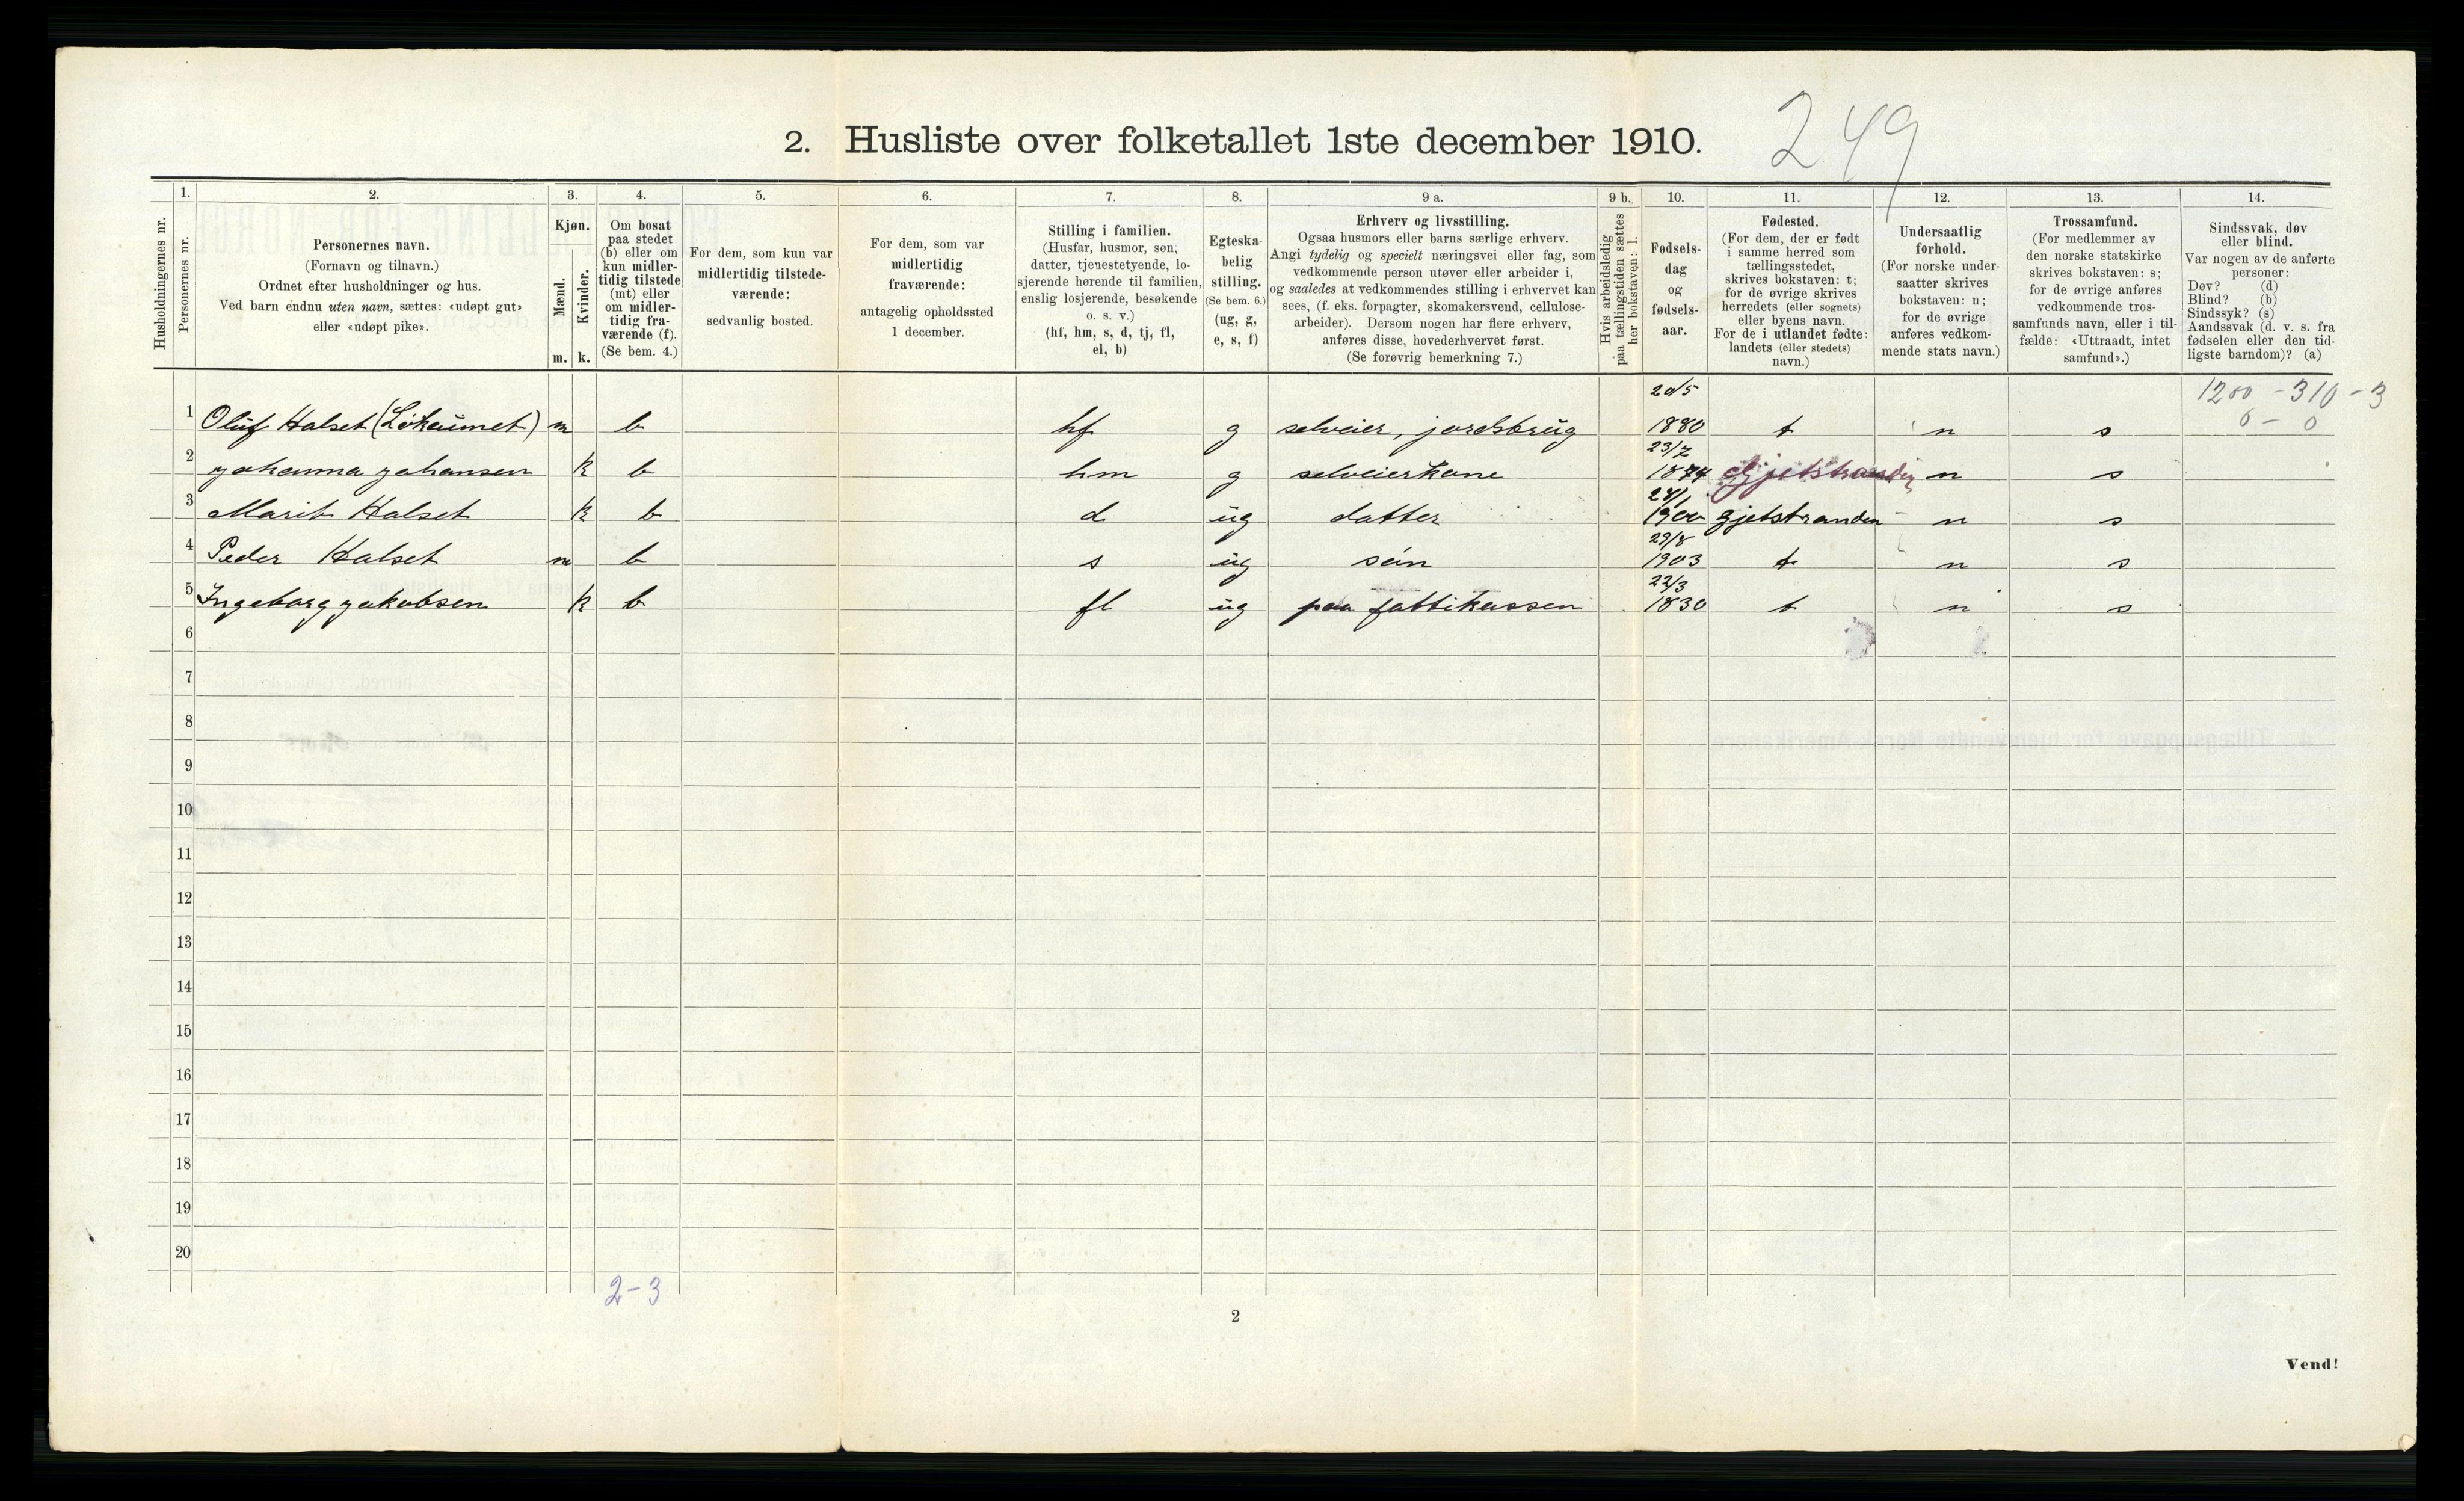 249
2. Husliste over folketallet 1ste december 1910.
Husholdningernes nr.
1. Personernes nr.
2. Personernes navn. (Fornavn og tilnavn.) Ordnet efter husholdninger og hus. Ved barn endnu uten navn, sættes: «udøpt gut» eller «udøpt pike».
3. Kjøn. Mænd. m. Kvinder. k.
4. Om bosat paa stedet (b) eller om kun midlertidig tilstede (mt) eller om midlertidig fraværende (f). (Se bem. 4.)
5. For dem, som kun var midlertidig tilstedeværende: sedvanlig bosted.
6. For dem, som var midlertidig fraværende: antagelig opholdssted 1 december.
7. Stilling i familien. (Husfar, husmor, søn, datter, tjenestetyende, losjerende hørende til familien, enslig losjerende, besøkende o. s. v.) (hf, hm, s, d, tj, fl, el, b)
8. Egteskabelig stilling. (Se bem. 6.) (ug, g, e, s, f)
9 a. Erhverv og livsstilling. Ogsaa husmors eller barns særlige erhverv. Angi tydelig og specielt næringsvei eller fag, som vedkommende person utøver eller arbeider i, og saaledes at vedkommendes stilling i erhvervet kan sees, (f. eks. forpagter, skomakersvend, cellulosearbeider). Dersom nogen har flere erhverv, anføres disse, hovederhvervet først. (Se forøvrig bemerkning 7.)
9 b. Hvis arbeidsledig paa tællingstiden sættes her bokstaven: l.
10. Fødselsdag og fødselsaar.
11. Fødested. (For dem, der er født i samme herred som tællingsstedet, skrives bokstaven: t; for de øvrige skrives herredets (eller sognets) eller byens navn. For de i utlandet fødte: landets (eller stedets) navn.)
12. Undersaatlig forhold. (For norske undersaatter skrives bokstaven: n; for de øvrige anføres vedkommende stats navn.)
13. Trossamfund. (For medlemmer av den norske statskirke skrives bokstaven: s; for de øvrige anføres vedkommende trossamfunds navn, eller i tilfælde: «Uttraadt, intet samfund».)
14. Sindssvak, døv eller blind. Var nogen av de anførte personer: Døv? (d) Blind? (b) Sindssyk? (s) Aandssvak (d. v. s. fra fødselen eller den tidligste barndom)? (a)
1200 - 310 - 3
0 - 0
1 Oluf Halset (Løkaunet) m b hf g selveier, jordsbrug 20/5 1880 t n s
2 Johanna Johansen k b hm g selveierkone 23/7 1874 Gjetstranden n s
3 Marit Halset k b d ug datter 28/1 1900 Gjetstranden n s
4 Peder Halset m b s ug søn 29/8 1903 t n s
5 Ingeborg Jakobsen k b fl ug paa fattikassen 22/3 1830 t n s
6
7
8
9
10
11
12
13
14
15
16
17
18
19
20
2-3
2
Vend!